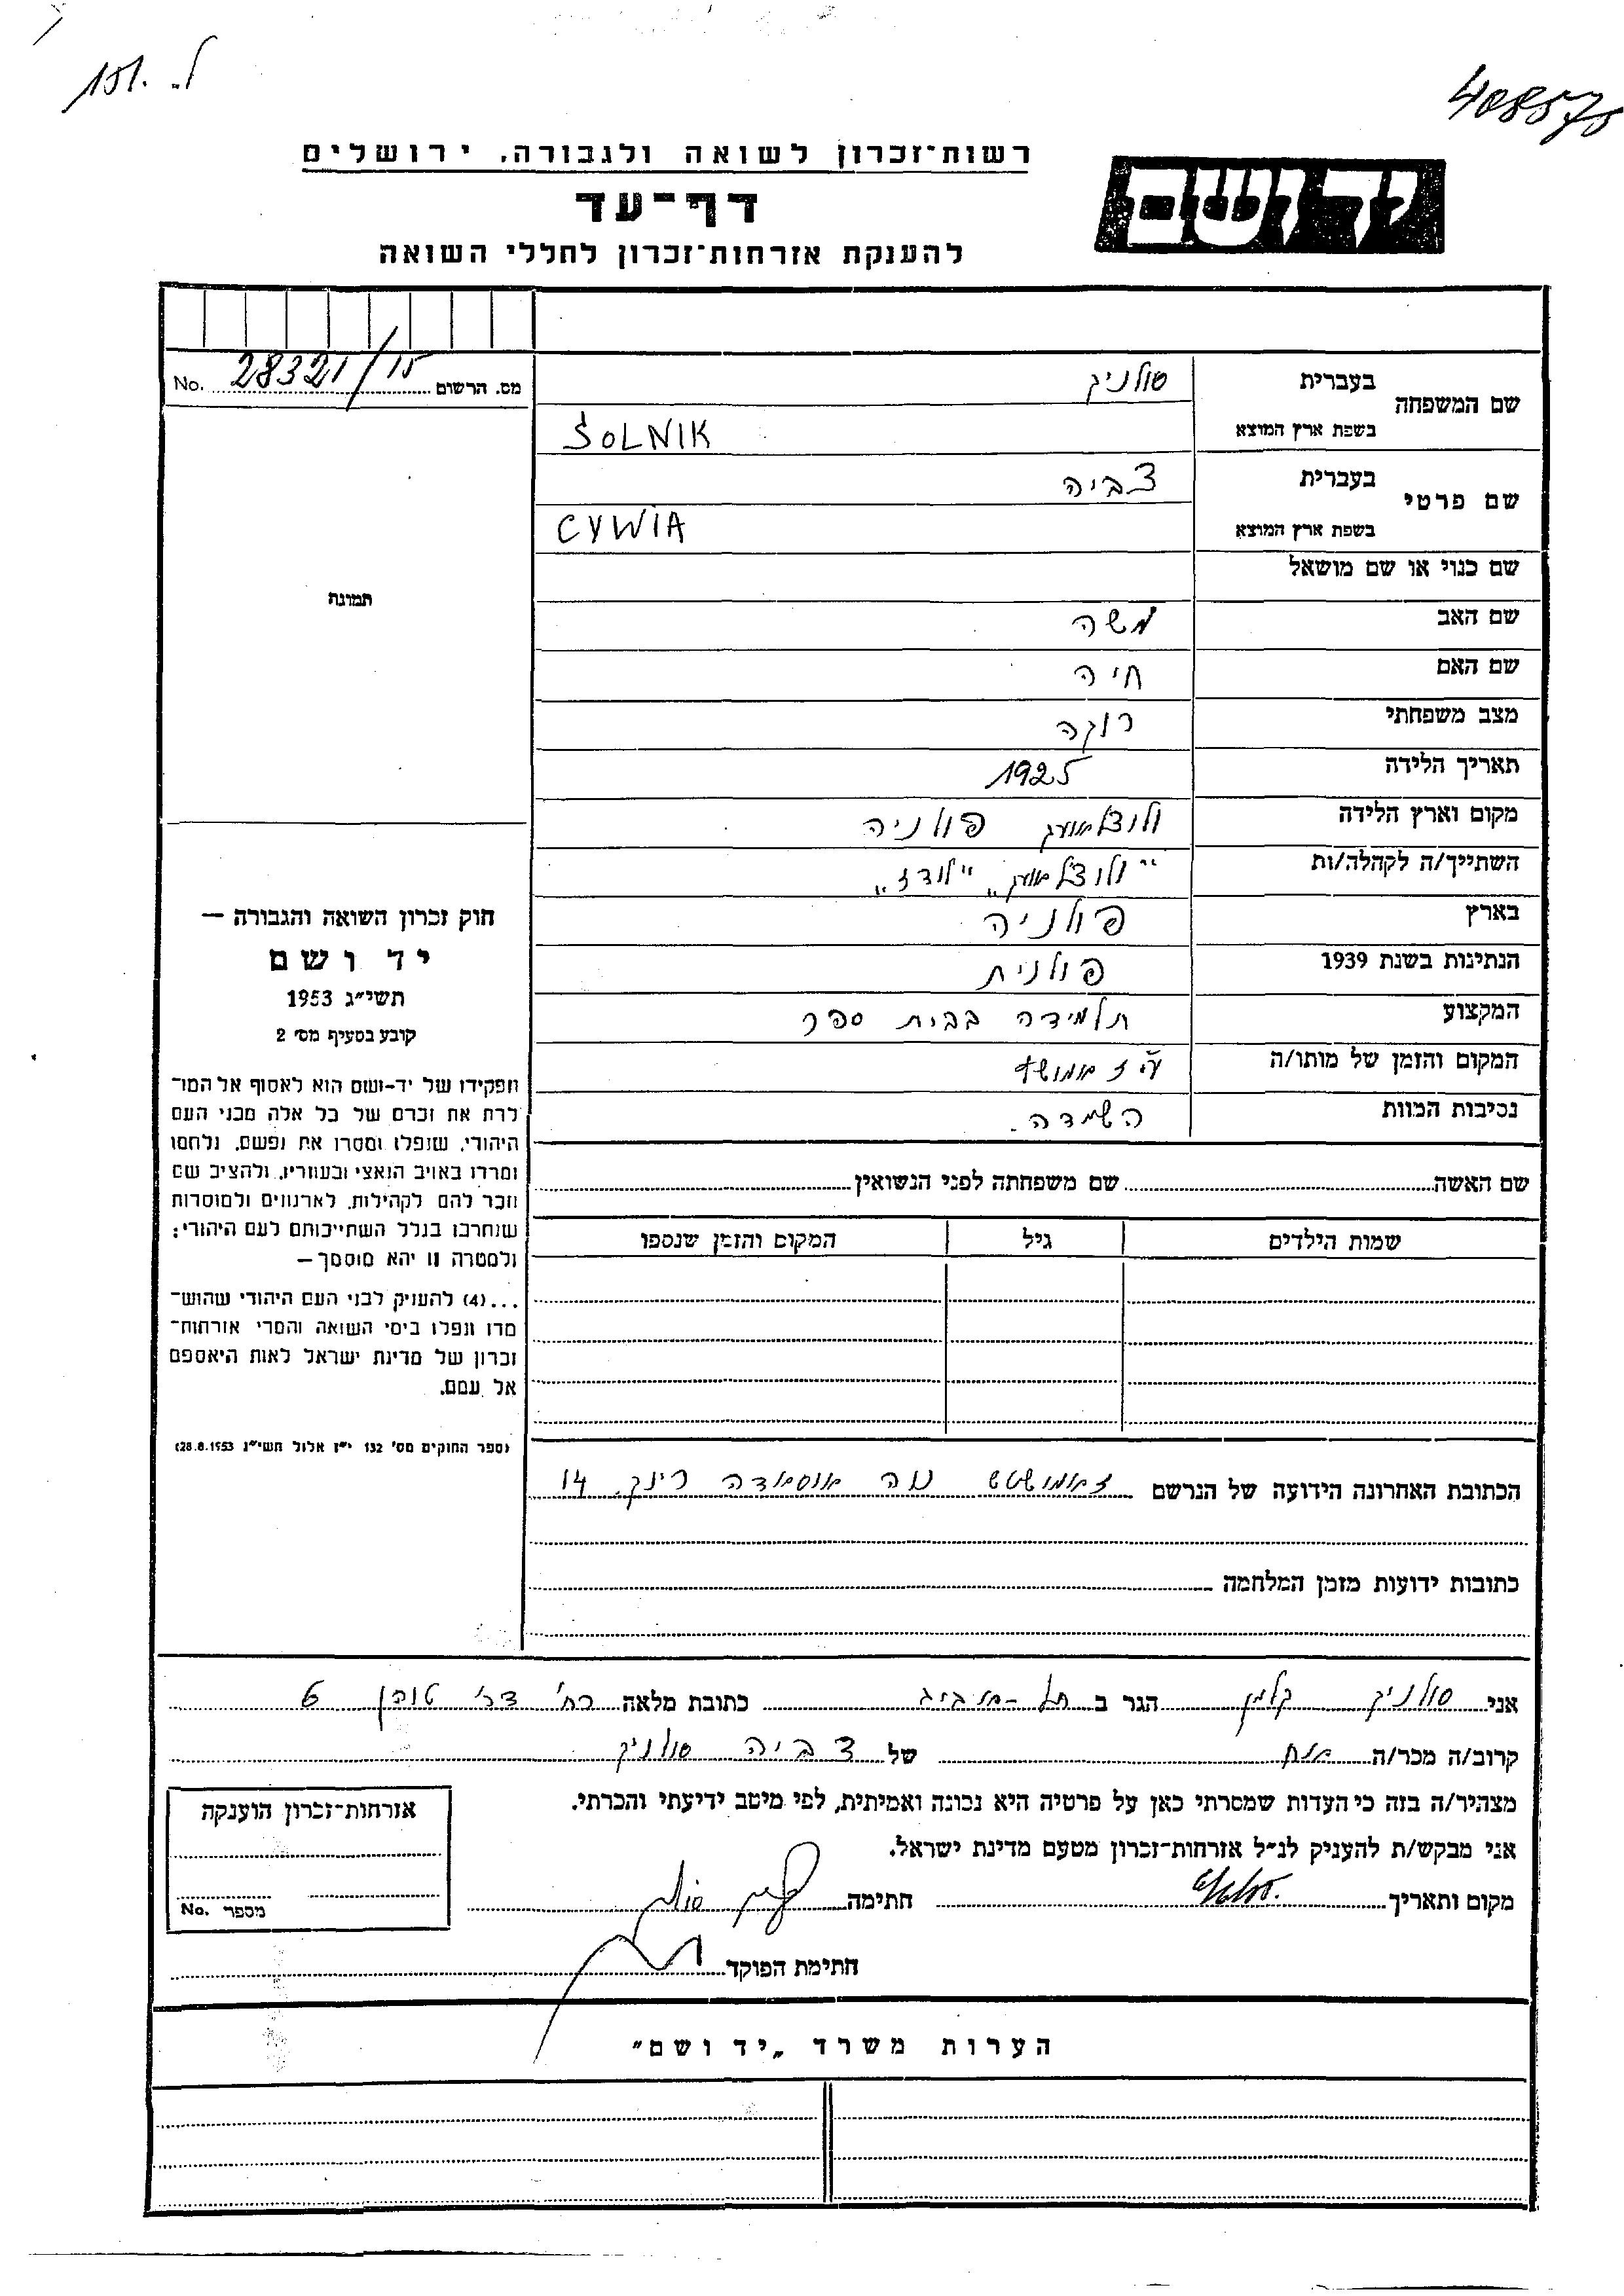 408575
רשות־זכרון לשואה ולגבורה, ירושלים
יד ושם
דף־עד
להענקת אזרחות־זכרון לחללי השואה
מס. הרשום 28321/15 No.
שם המשפחה
בעברית סולניק
בשפת ארץ המוצא SOLNIK
שם פרטי
בעברית צביה
בשפת ארץ המוצא CYWIA
שם כנוי או שם מושאל
שם האב משה
שם האם חיה
מצב משפחתי רוקה
תאריך הלידה 1925
מקום וארץ הלידה פולניה
השתייך/ה לקהלה/ות "לודז"
בארץ פולניה
הנתינות בשנת 1939 פולנית
המקצוע תלמידה בבית ספר
המקום והזמן של מותו/ה
נסיבות המוות השמדה.
תמונה
חוק זכרון השואה והגבורה —
יד ושם
תשי"ג 1953
קובע בסעיף מס' 2
תפקידו של יד-ושם הוא לאסוף אל המו־
לדת את זכרם של כל אלה מבני העם
היהודי, שנפלו ומסרו את נפשם, נלחמו
ומרדו באויב הנאצי ובעוזריו, ולהציב שם
וזכר להם לקהילות, לארגונים ולמוסדות
שנחרבו בגלל השתייכותם לעם היהודי;
ולמטרה זו יהא מוסמך —
...(4) להעניק לבני העם היהודי שהוש־
מדו ונפלו בימי השואה והמרי אזרחות־
זכרון של מדינת ישראל לאות היאספם
אל עמם.
(ספר החוקים מס' 132 י"ז אלול תשי"ג 28.8.1953)
שם האשה שם משפחתה לפני הנשואין
שמות הילדים גיל המקום והזמן שנספו
הכתובת האחרונה הידועה של הנרשם רינק 14
כתובות ידועות מזמן המלחמה
אני סולניק קלמן הגר ב תל-אביב כתובת מלאה רח' 6
קרוב/ה מכר/ה אח של צביה סולניק
מצהיר/ה בזה כי העדות שמסרתי כאן על פרטיה היא נכונה ואמיתית, לפי מיטב ידיעתי והכרתי.
אני מבקש/ת להעניק לנ"ל אזרחות־זכרון מטעם מדינת ישראל.
מקום ותאריך חתימה
חתימת הפוקד
אזרחות־זכרון הוענקה
מספר No.
הערות משרד „יד ושם"